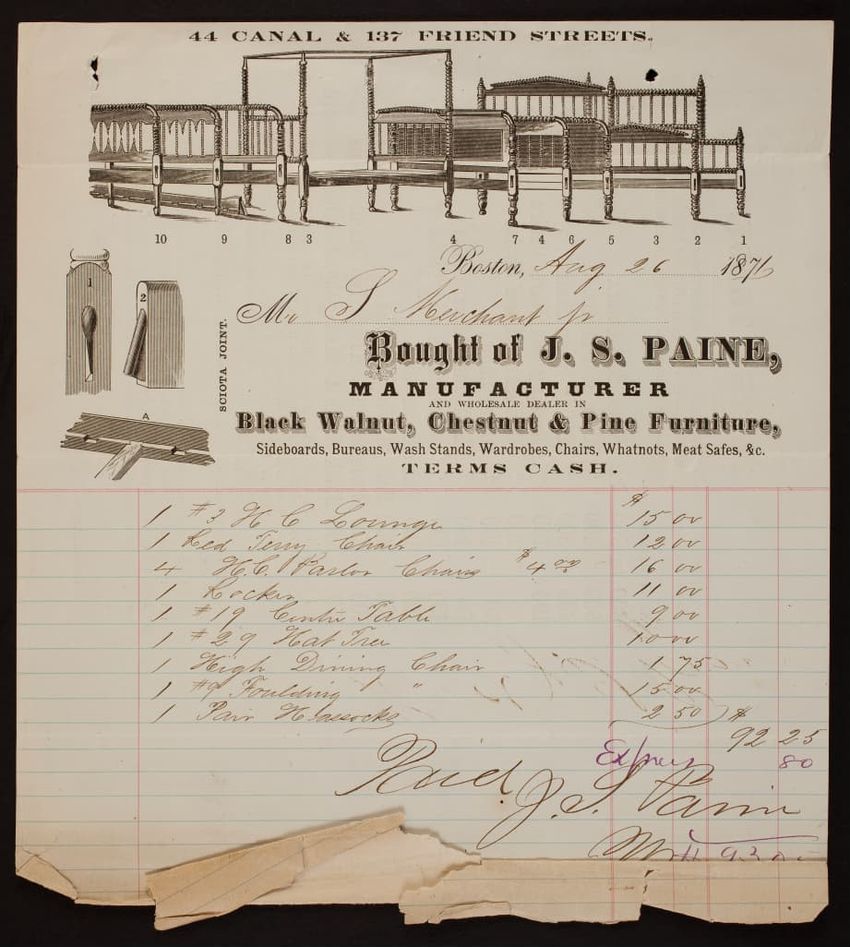 44 CANAL & 137 FRIEND STREETS.
10 9 8 3 4 7 4 6 5 3 2 1
Boston, Aug 26 1871
Mr S Merchant jr
1
2
SCIOTA JOINT.
A
Bought of J. S. PAINE,
MANUFACTURER
AND WHOLESALE DEALER IN
Black Walnut, Chestnut & Pine Furniture,
Sideboards, Bureaus, Wash Stands, Wardrobes, Chairs, Whatnots, Meat Safes, &c.
TERMS CASH.
$
1 #3 H C Lounge 15 00
1 Red Terry Chair 12 00
4 H.C. Parlor Chairs $4.00 16 00
1 Rocker 11 00
1 #19 Centre Table 9 00
1 #29 Hat Tree 10 00
1 High Dining Chair 1 75
1 #9 Foulding " 15 00
1 Pair Hassocks 2 50 $
92 25
80
Paid
J. S. Paine